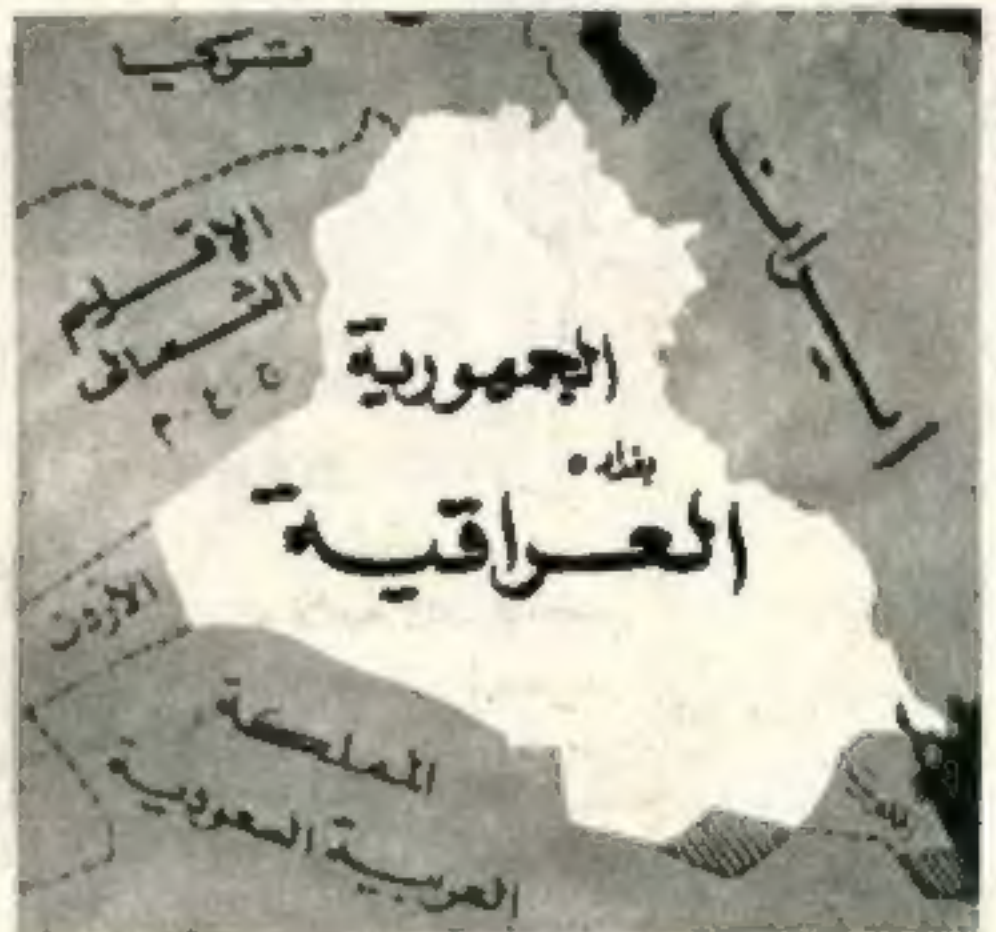 تركيا
إيران
الإقليم
الشمالي
ج.ع.م
الجمهورية
بغداد
العراقية
الأردن
المملكة
العربية السعودية